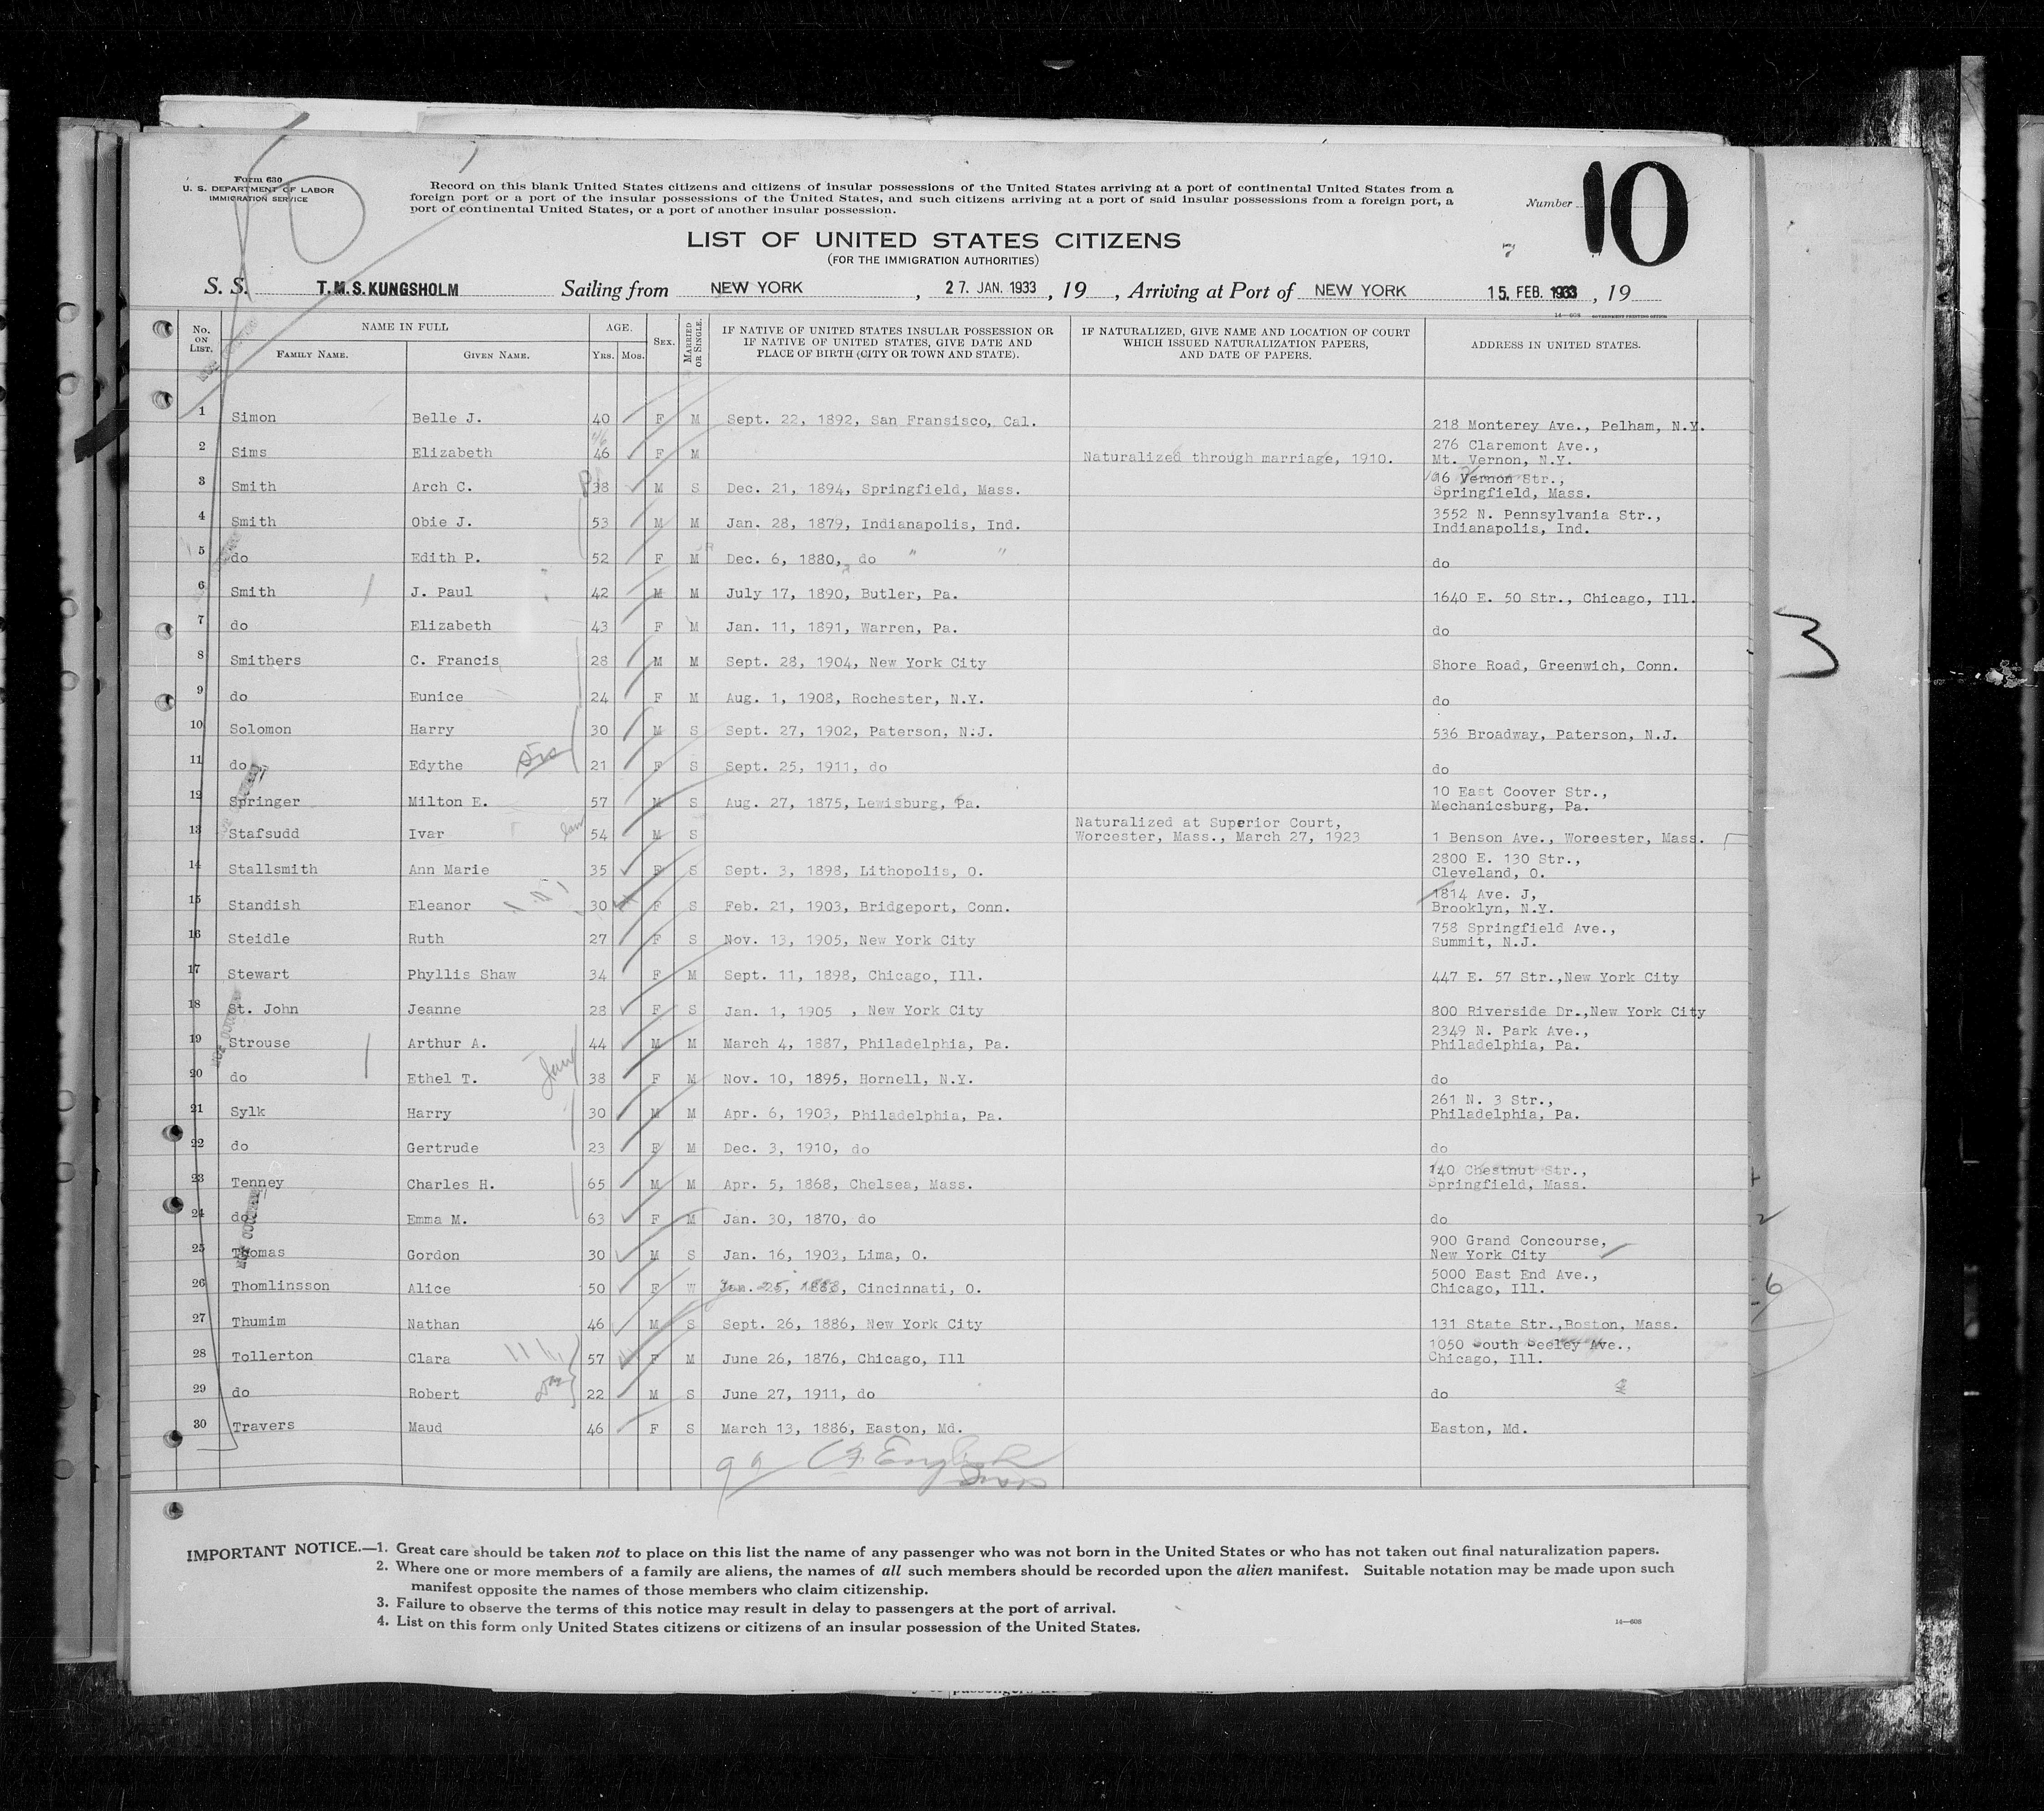 Form 630
U. S. DEPARTMENT OF LABOR
IMMIGRATION SERVICE
Record on this blank United States citizens and citizens of insular possessions of the United States arriving at a port of continental United States from a
foreign port or a port of the insular possessions of the United States, and such citizens arriving at a port of said insular possessions from a foreign port, a
port of continental United States, or a port of another insular possession.
Number 10
LIST OF UNITED STATES CITIZENS
(FOR THE IMMIGRATION AUTHORITIES)
S. S. T.M.S. KUNGSHOLM Sailing from NEW YORK, 27. JAN. 1933, 19 , Arriving at Port of NEW YORK 15. FEB. 1933, 19
14-608 GOVERNMENT PRINTING OFFICE
No. ON LIST. NAME IN FULL FAMILY NAME. GIVEN NAME. AGE. YRS. MOS. SEX. MARRIED OR SINGLE. IF NATIVE OF UNITED STATES INSULAR POSSESSION OR IF NATIVE OF UNITED STATES, GIVE DATE AND PLACE OF BIRTH (CITY OR TOWN AND STATE). IF NATURALIZED, GIVE NAME AND LOCATION OF COURT WHICH ISSUED NATURALIZATION PAPERS, AND DATE OF PAPERS. ADDRESS IN UNITED STATES.
1 Simon Belle J. 40 F M Sept. 22, 1892, San Fransisco, Cal. 218 Monterey Ave., Pelham, N.Y.
2 Sims Elizabeth 46 F M Naturalized through marriage, 1910. 276 Claremont Ave., Mt. Vernon, N.Y.
3 Smith Arch C. 38 M S Dec. 21, 1894, Springfield, Mass. 16 Vernon Str., Springfield, Mass.
4 Smith Obie J. 53 M M Jan. 28, 1879, Indianapolis, Ind. 3552 N. Pennsylvania Str., Indianapolis, Ind.
5 do Edith P. 52 F M Dec. 6, 1880, do " " do
6 Smith J. Paul 42 M M July 17, 1890, Butler, Pa. 1640 E. 50 Str., Chicago, Ill.
7 do Elizabeth 43 F M Jan. 11, 1891, Warren, Pa. do
8 Smithers C. Francis 28 M M Sept. 28, 1904, New York City Shore Road, Greenwich, Conn.
9 do Eunice 24 F M Aug. 1, 1908, Rochester, N.Y. do
10 Solomon Harry 30 M S Sept. 27, 1902, Paterson, N.J. 536 Broadway, Paterson, N.J.
11 do Edythe 21 F S Sept. 25, 1911, do do
12 Springer Milton E. 57 M S Aug. 27, 1875, Lewisburg, Pa. 10 East Coover Str., Mechanicsburg, Pa.
13 Stafsudd Ivar 54 M S Naturalized at Superior Court, Worcester, Mass., March 27, 1923 1 Benson Ave., Worcester, Mass.
14 Stallsmith Ann Marie 35 F S Sept. 3, 1898, Lithopolis, O. 2800 E. 130 Str., Cleveland, O.
15 Standish Eleanor 30 F S Feb. 21, 1903, Bridgeport, Conn. 1814 Ave. J, Brooklyn, N.Y.
16 Steidle Ruth 27 F S Nov. 13, 1905, New York City 758 Springfield Ave., Summit, N.J.
17 Stewart Phyllis Shaw 34 F M Sept. 11, 1898, Chicago, Ill. 447 E. 57 Str.,New York City
18 St. John Jeanne 28 F S Jan. 1, 1905 , New York City 800 Riverside Dr.,New York City
19 Strouse Arthur A. 44 M M March 4, 1887, Philadelphia, Pa. 2349 N. Park Ave., Philadelphia, Pa.
20 do Ethel T. 38 F M Nov. 10, 1895, Hornell, N.Y. do
21 Sylk Harry 30 M M Apr. 6, 1903, Philadelphia, Pa. 261 N. 3 Str., Philadelphia, Pa.
22 do Gertrude 23 F M Dec. 3, 1910, do do
23 Tenney Charles H. 65 M M Apr. 5, 1868, Chelsea, Mass. 140 Chestnut Str., Springfield, Mass.
24 do Emma M. 63 F M Jan. 30, 1870, do do
25 Thomas Gordon 30 M S Jan. 16, 1903, Lima, O. 900 Grand Concourse, New York City
26 Thomlinsson Alice 50 F W Jan. 25, 1883, Cincinnati, O. 5000 East End Ave., Chicago, Ill.
27 Thumim Nathan 46 M S Sept. 26, 1886, New York City 131 State Str.,Boston, Mass.
28 Tollerton Clara 57 F M June 26, 1876, Chicago, Ill 1050 South Seeley Ave., Chicago, Ill.
29 do Robert 22 M S June 27, 1911, do do
30 Travers Maud 46 F S March 13, 1886, Easton, Md. Easton, Md.
3
6
IMPORTANT NOTICE.—1. Great care should be taken not to place on this list the name of any passenger who was not born in the United States or who has not taken out final naturalization papers.
2. Where one or more members of a family are aliens, the names of all such members should be recorded upon the alien manifest. Suitable notation may be made upon such
manifest opposite the names of those members who claim citizenship.
3. Failure to observe the terms of this notice may result in delay to passengers at the port of arrival.
4. List on this form only United States citizens or citizens of an insular possession of the United States.
14—608